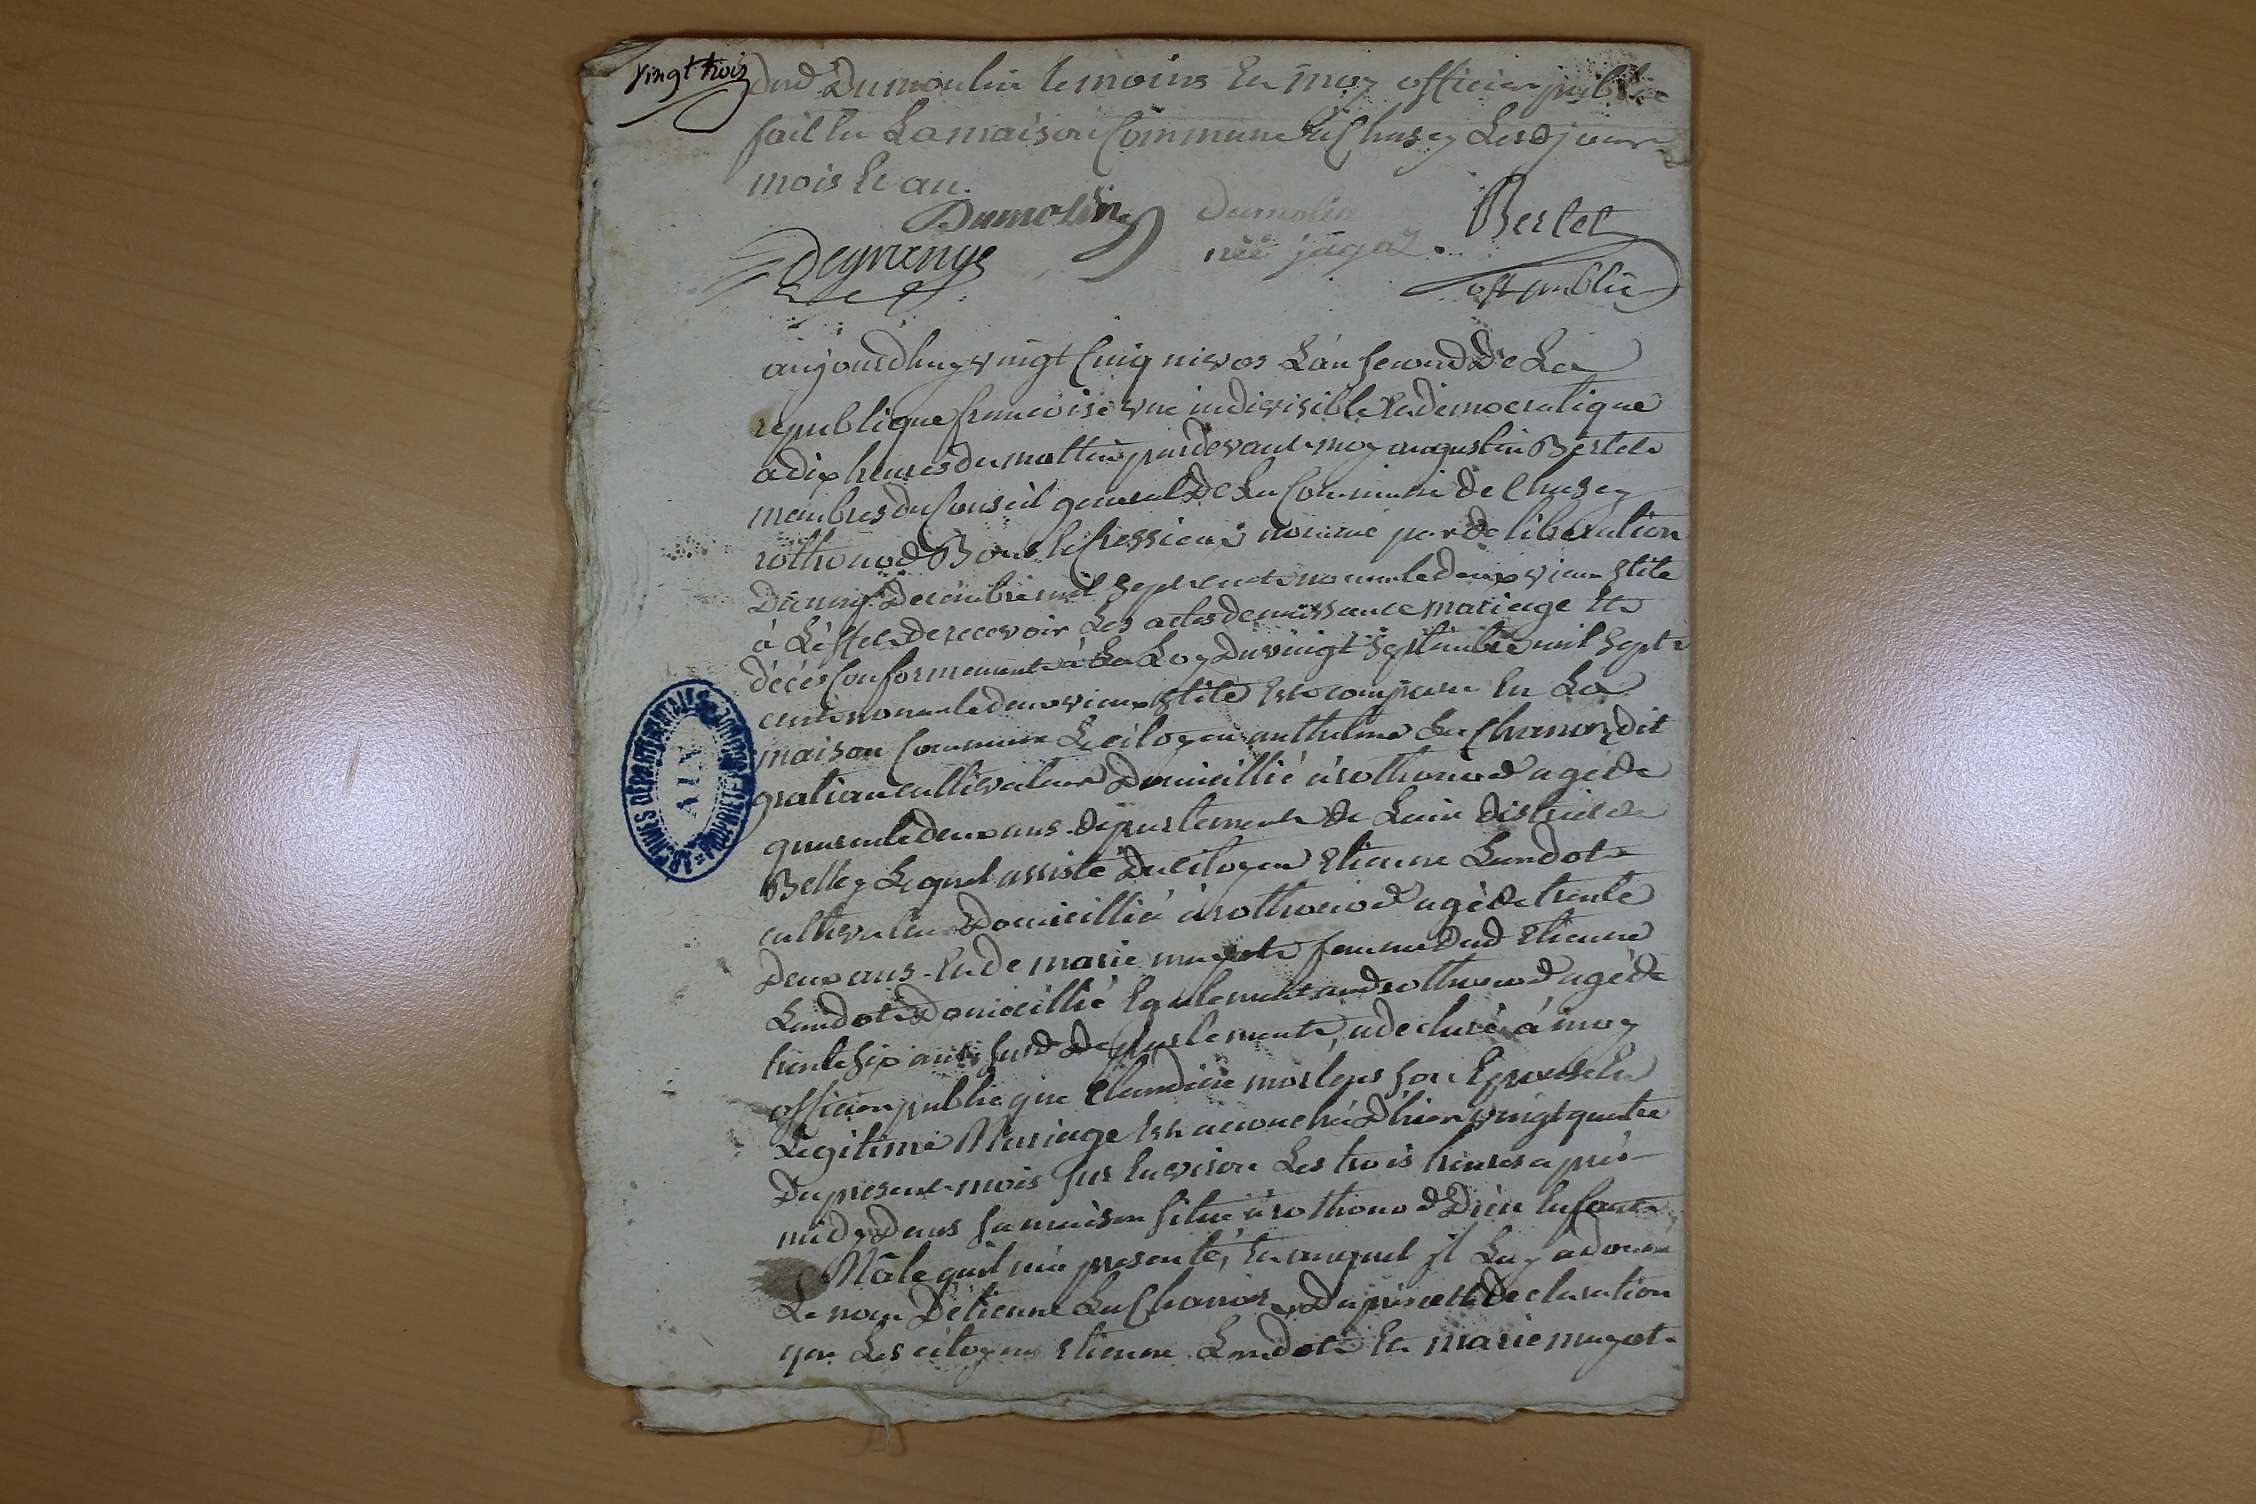 vingt trois
dud Dumoulin temoins Et moy officier public
fait En La maison Commune de Chusey Lesd jour
mois Et an.
Dumolin Dumolin Bertet
Degrenge née jagaz off public
aujourdhuy vingt Cinq nivos L'an second De La
republique francoise une indivisible Et democratique
a dix heures du mattin pardevant moy augustin Bertet
membres du Conseil general De La Commune de Chusey
rothonod Bons Et Cressieux nommé par deliberation
Du neuf Decembre mil Sept cent nonante deux vieux stile
à L'effet De recevoir Les actes de naissance mariage Et
décés Conformement à La Loy Du vingt Septembre mil Sept
cent nonante deux vieux stile Est comparu En La
maison Commune Le citoyen anthelme La Chanaz dit
gratian cultivateur Domicillié à rothonod agé de
quarante deux ans departement de Lain district de
Belley Lequel assisté Du citoyen Etienne Landot
cultivateur Domicillié à rothonod agé de trente
Deux ans Et de marie mugot femme Dud Etienne
Landot Domicillié Egalement aud rothonod agé de
trente Six ans susd Departement, a declaré à moy
officier public que Claudine Epouse En
Legitime Mariage Est accouchée D'hier vingt quatre
Du present mois sur Environ Les trois heures aprés
midy Dans sa maison située à rothonod D'un Enfant
Mâle qu'il m'a presenté, Et auquel il Luy a donné
Le nom D'etienne La Chanaz D'aprés cette Declaration
que Les citoyens Etienne Landot Et marie mugot
ARCHIVES DÉPARTEMENTALES
AIN
PROPRIÉTÉ PUBLIQUE